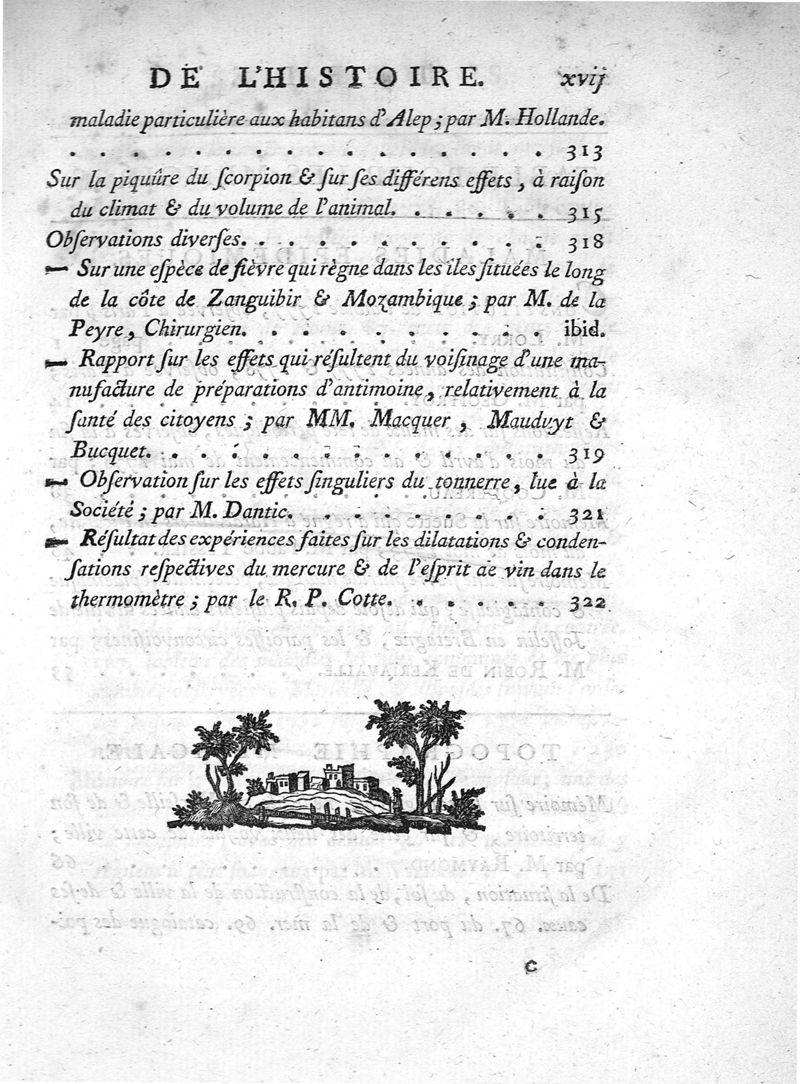 DE L'HISTOIRE. xvij
maladie particulière aux habitans d'Alep ; par M. Hollande.
. . . . . . . . . . . . . . . . 313
Sur la piquûre du ſcorpion & ſur ſes différens effets , à raiſon
du climat & du volume de l'animal. . . . . . 315
Obſervations diverſes. . . . . . . . . . . 318
— Sur une eſpèce de fièvre qui règne dans les îles ſituées le long
de la côte de Zanguibir & Mozambique ; par M. de la
Peyre, Chirurgien. . . . . . . . . . . ibid.
— Rapport ſur les effets qui réſultent du voiſinage d'une ma-
nufacture de préparations d'antimoine, relativement à la
ſanté des citoyens ; par MM. Macquer , Mauduyt &
Bucquet. . . . . . . . . . . . . . 319
— Obſervation ſur les effets ſinguliers du tonnerre, lue à la
Société ; par M. Dantic. . . . . . . . . 321
— Réſultat des expériences faites ſur les dilatations & conden-
ſations reſpectives du mercure & de l'eſprit de vin dans le
thermomètre ; par le R. P. Cotte. . . . . . 322
C